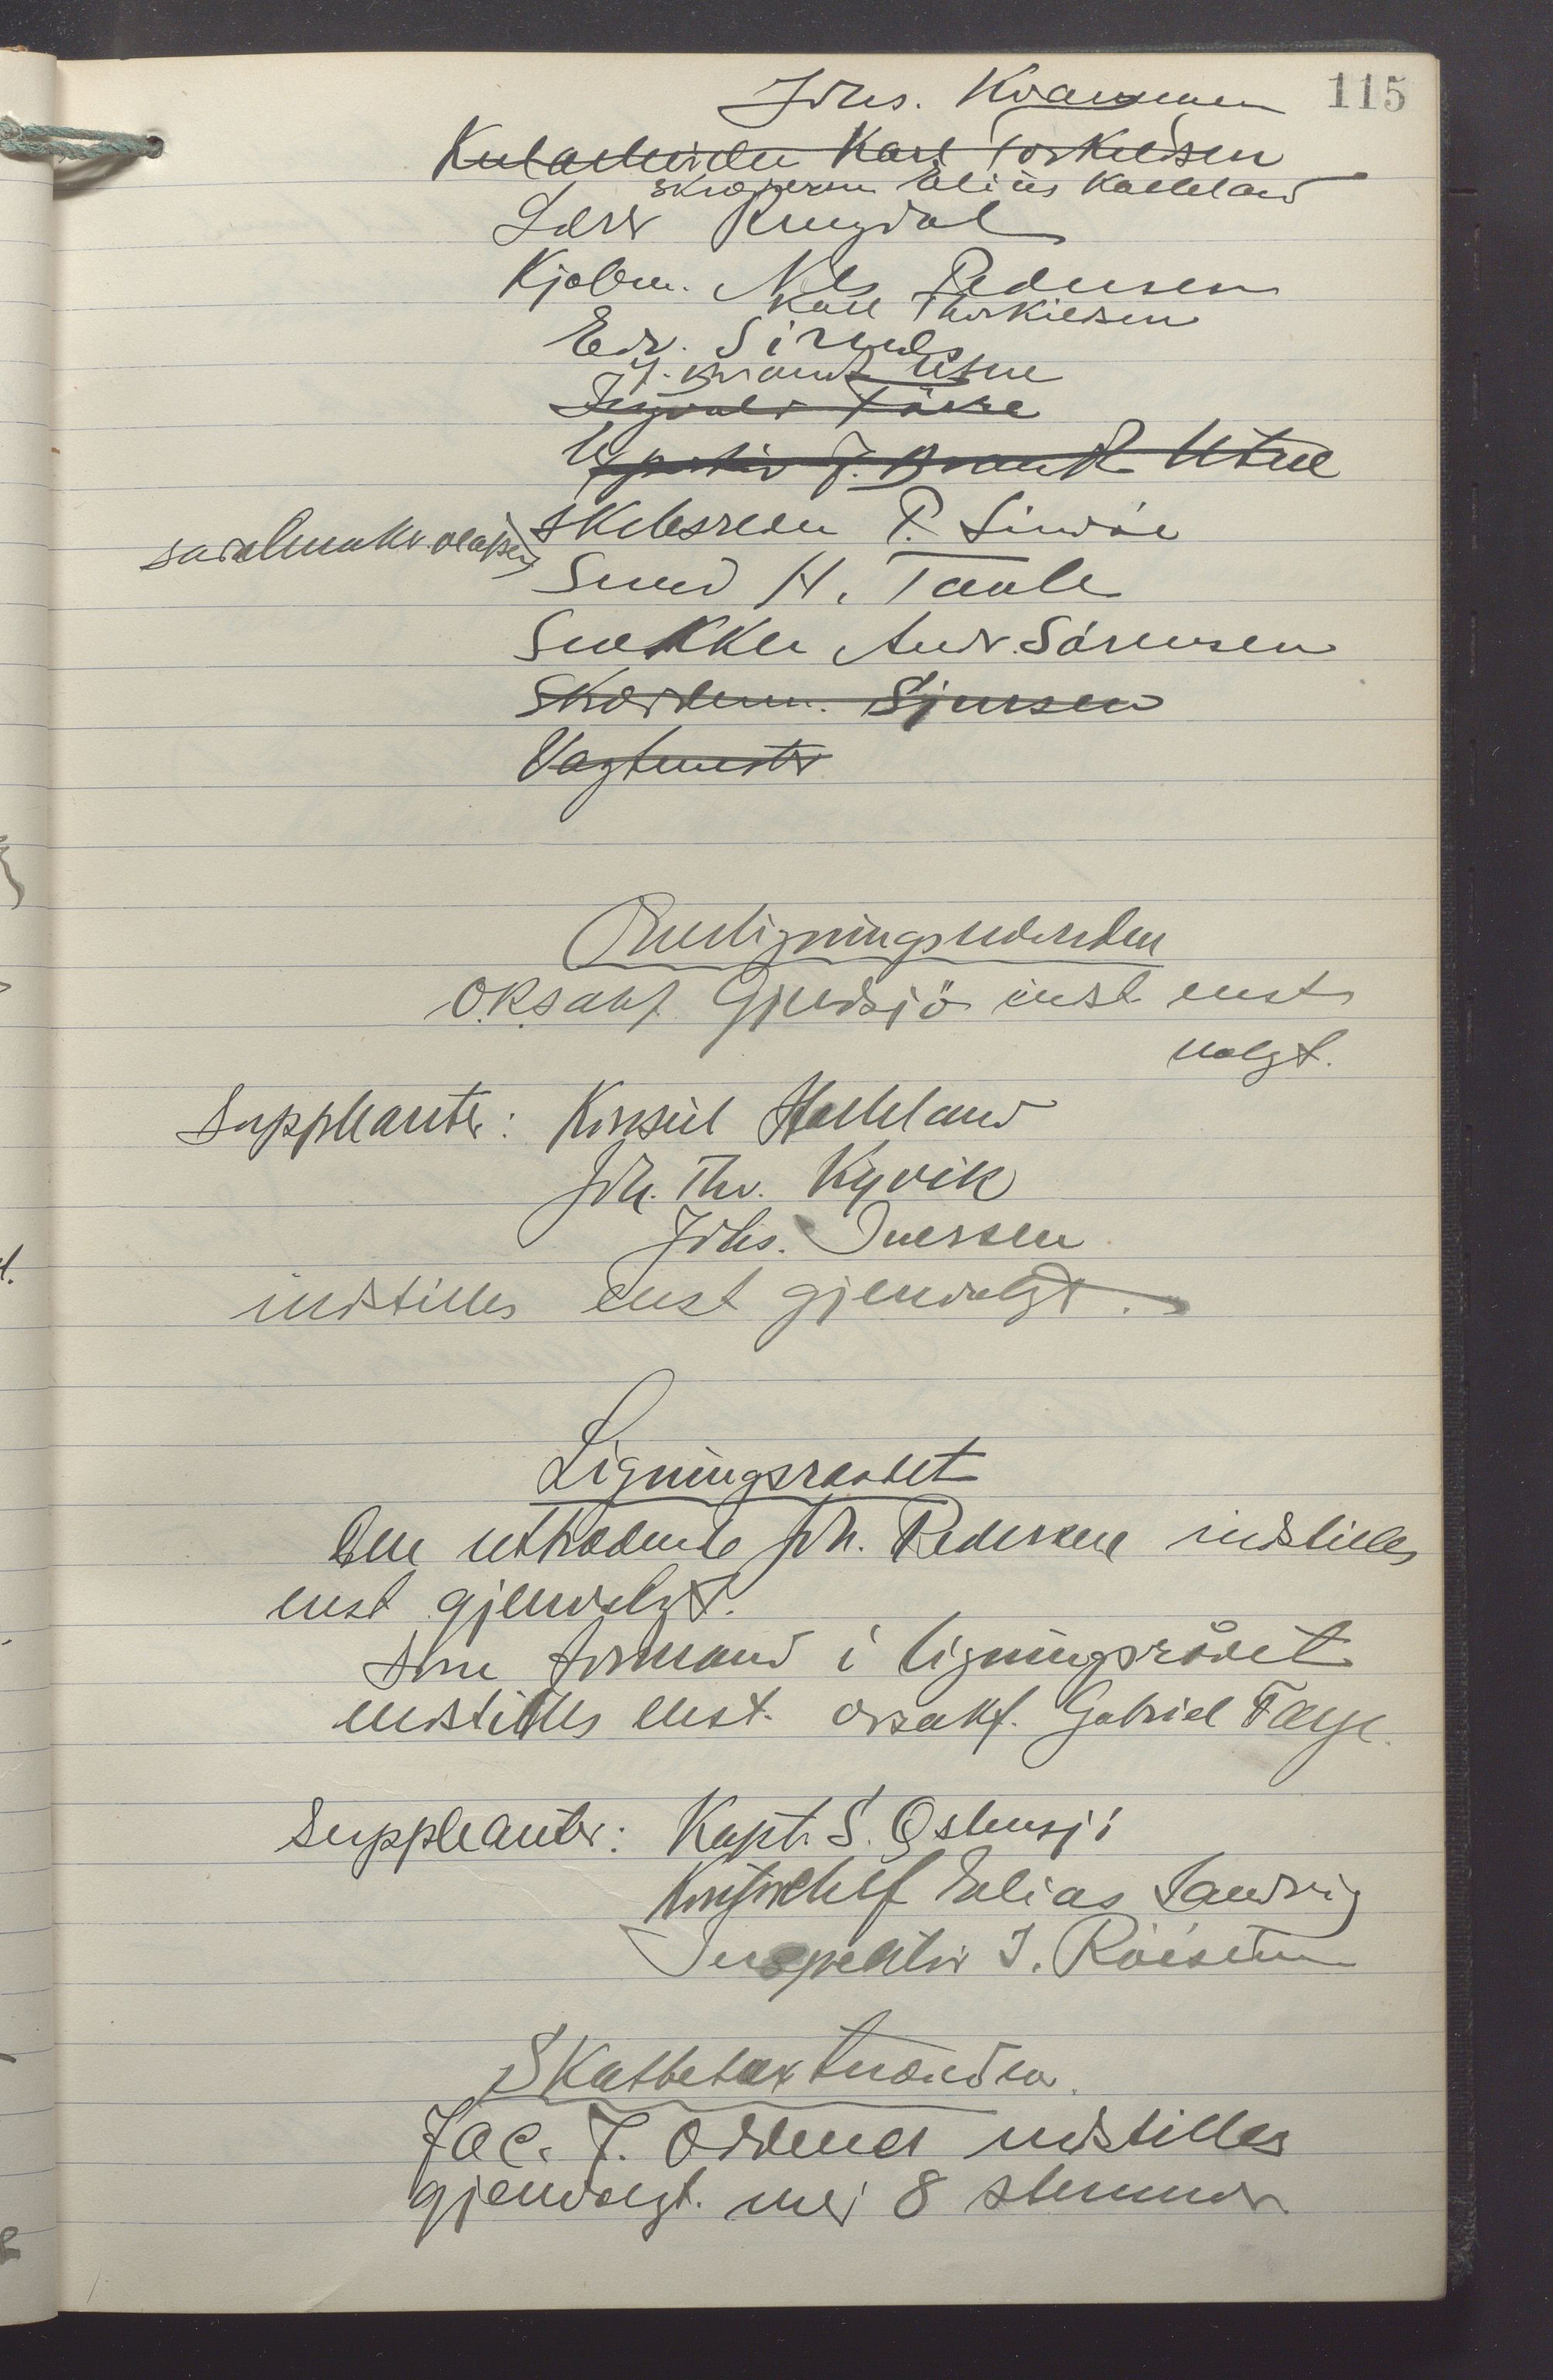 115
Johs. Kvammen
Kulaarbeider Karl Torkildsen
Skræpperm Elius Kalleland
Lærer Ringdal
Kjøbm. Nils Pedersen
Karl Thorkildsen
Edv. Sirnes
J. Brandt Utne
Ingvald Færø
J. Brandt Utne
Skibsreder P. Lindøe
sadelmaker Olafsen
Smed H. Taule
Snekker Andr. Sörensen
Skrædderm. Sjursen
Vagtmester
Overligningsnevnden
O.R.sakf. Gjerdsjö indst. enst.
valgt.
Suppleanter: Konsul Halleland
Joh. Thv. Kyvik
Johs. Iversen
indstilles enst gjenvalgt.
Ligningsraadet
Den uttrædende Joh. Pedersen indstilles
enst gjenvalgt.
Som formand i ligningsrådet
indstilles enst. orsakf. Gabriel Faye.
Suppleanter: Kapt. S. Østensjö
Kontorchef Elias Sandvig
Inspektör I. Röisum
Skattetakstnævnden.
Jac. J. Odland indstilles
gjenvalgt. med 8 stemmer